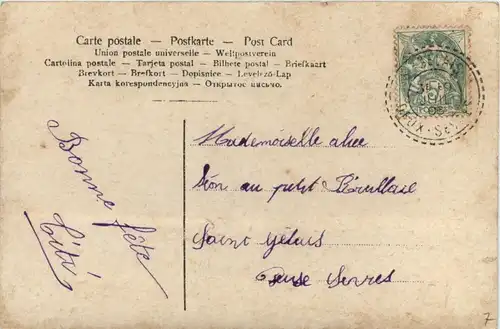 Carte postale — Postkarte — Post Card
Union postale universelle — Weltpostverein
Cartolina postale — Tarjeta postal — Bilhete postal — Briefkaart
Brevkort — Brefkort — Dopisnice — Levelező-Lap
Karta korespondencyjna — Открытое письмо.
Bonne fête
Titi
Mademoiselle alice
au petit
Saint Gelais
Deux Sevres
7